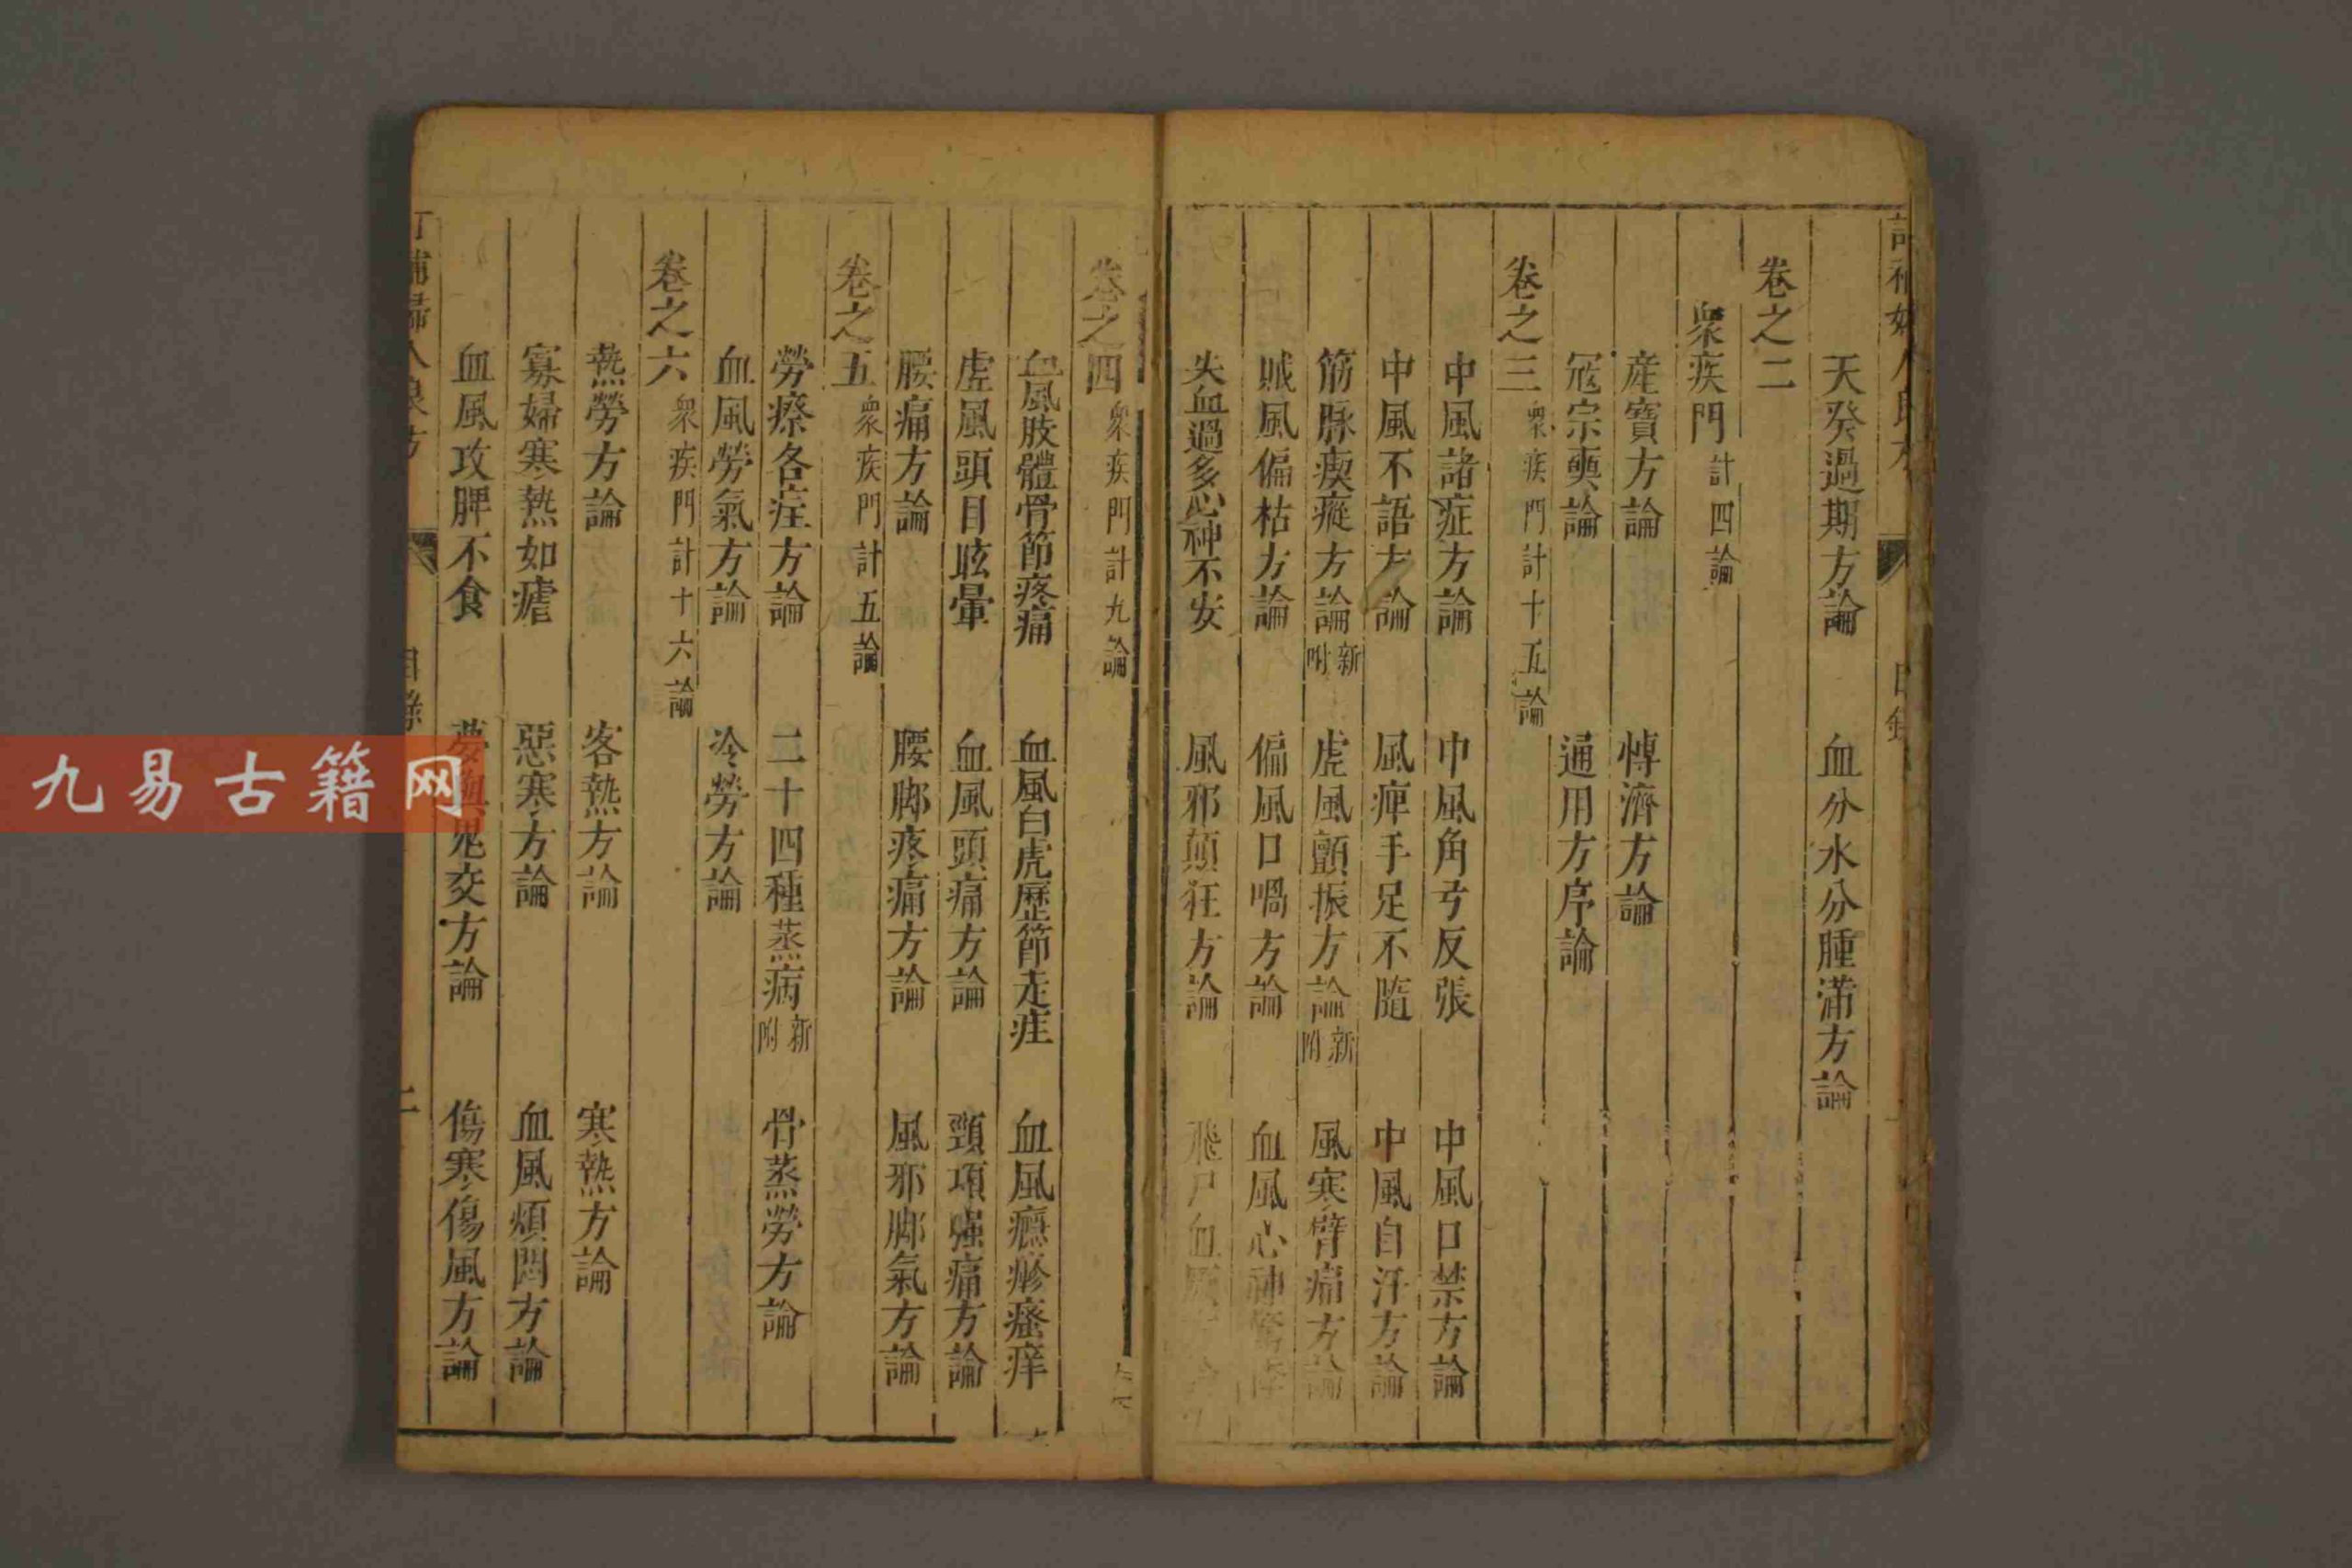 天癸過期方論　血分水分腫滿方論
卷之二
衆疾門計四論
產寶方論　博濟方論
寇宗奭論　通用方序論
卷之三衆疾門計十五論
中風諸症方論　中風角弓反張　中風口禁方論
中風不語方論　風痺手足不隨　中風自汗方論
筋脉瘈瘲方論新附　虎風顫振方論新附　風寒臂痛方論
賊風偏枯方論　偏風口喎方論　血風心神驚悸
失血過多心神不安　風邪顛狂方論　飛尸血厥
卷之四衆疾門計九論
血風肢體骨節疼痛　血風白虎歷節走疰　血風癮疹瘙痒
虎風頭目眩暈　血風頭痛方論　頸項強痛方論
腰痛方論　腰脚疼痛方論　風邪脚氣方論
卷之五衆疾門計五論
勞瘵各症方論　二十四種蒸病新附　骨蒸勞方論
血風勞氣方論　冷勞方論
卷之六衆疾門計十六論
熱勞方論　客熱方論　寒熱方論
寡婦寒熱如瘧　惡寒方論　血風煩悶方論
血風攻脾不食　鬼交方論　傷寒傷風方論
補婦人良方
九易古籍网